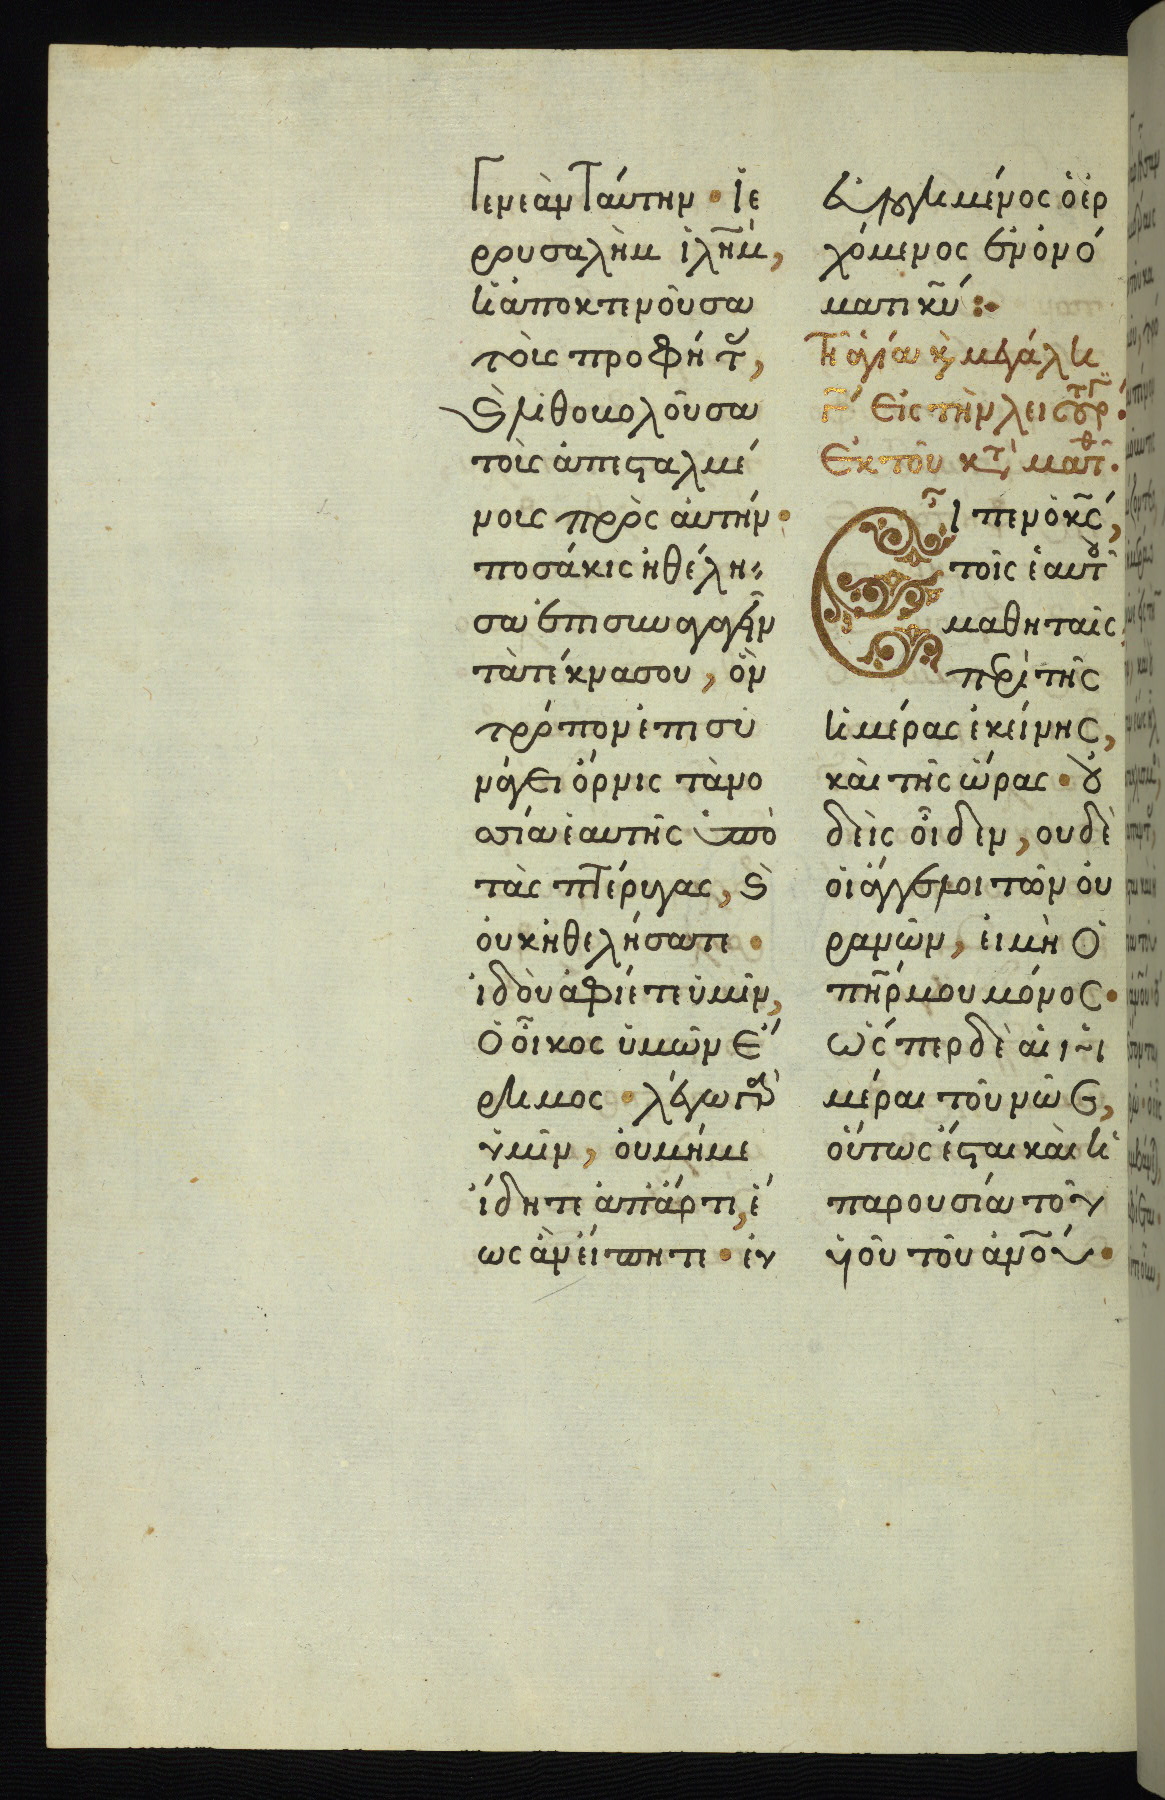 Γενεὰν Ταύτην · Ϊε
ρρυσαλὴμ ἰλ̃ημ,
ἡ ἀποκτενοῦσα
τοὺς προφήτ,
ϗ λιθοκολοῦσα
τοὺς ἀπεσταλμέ
νους πρὸς ἀυτήν ·
ποσάκις ἠθέλη
σα ἐπισυναγαγεῖν
τὰ τέκνα σου, ὃν
τρόπον ἐπισυ
νάγει ὄρνις τὰ νο
σσία ἑαυτῆς ὑπὸ
τὰς πτέρυγας, ϗ
ὀυκ ἠθελήσατε ·
ἰδοὺ ἀφίετε ὑμῖν,
Ὁ οἶκος ὑμῶν ἔ
ρημος · λέγω γὰρ
ὑμῖν, ὀυ μή με
ἴδητε ἀπάρτι, ἕ
ως ἂν ἔιπητε · ἐυ
Ευλογημένος ὁ ἐρ
χόμενος ἐν ὀνό
ματι κ̃υ :·
Τῆ ἁγία ϗ μεγάλη
γ̅ Εἰς τὴν λειτουργ ·
Ἐκ τοῦ κτ ματθ ·
Εἶπεν ὁ κ̃ς,
τοῖς ἑαυτοῦ
μαθηταῖς
περὶ τῆς
ἡμέρας ἐκείνης,
καὶ τῆς ὥρας · ȣ
δεὶς οἶδεν, ουδὲ
οἱ ἄγγελοι τῶν ὀυ
ρανῶν, ἐι μὴ Ὁ
π̃ηρ μου μόνος ·
Ὥσπερ δὲ ἁι ἡ
μέραι τοῦ νῶε,
ὅυτως ἔσται καὶ ἡ
παρουσία τοῦ
ὑιοῦ τοῦ ἀν̃ου ·